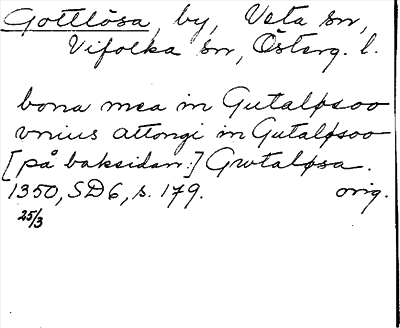 Gottlösa, by, Veta sn,
Vifolka sn, Österg. l.
bona mea in Gutaløsoo
vnius attongi in Gutaløsoo
[på baksidan:] Gwtaløsa.
1350, SD6, s. 179. orig.
25/3